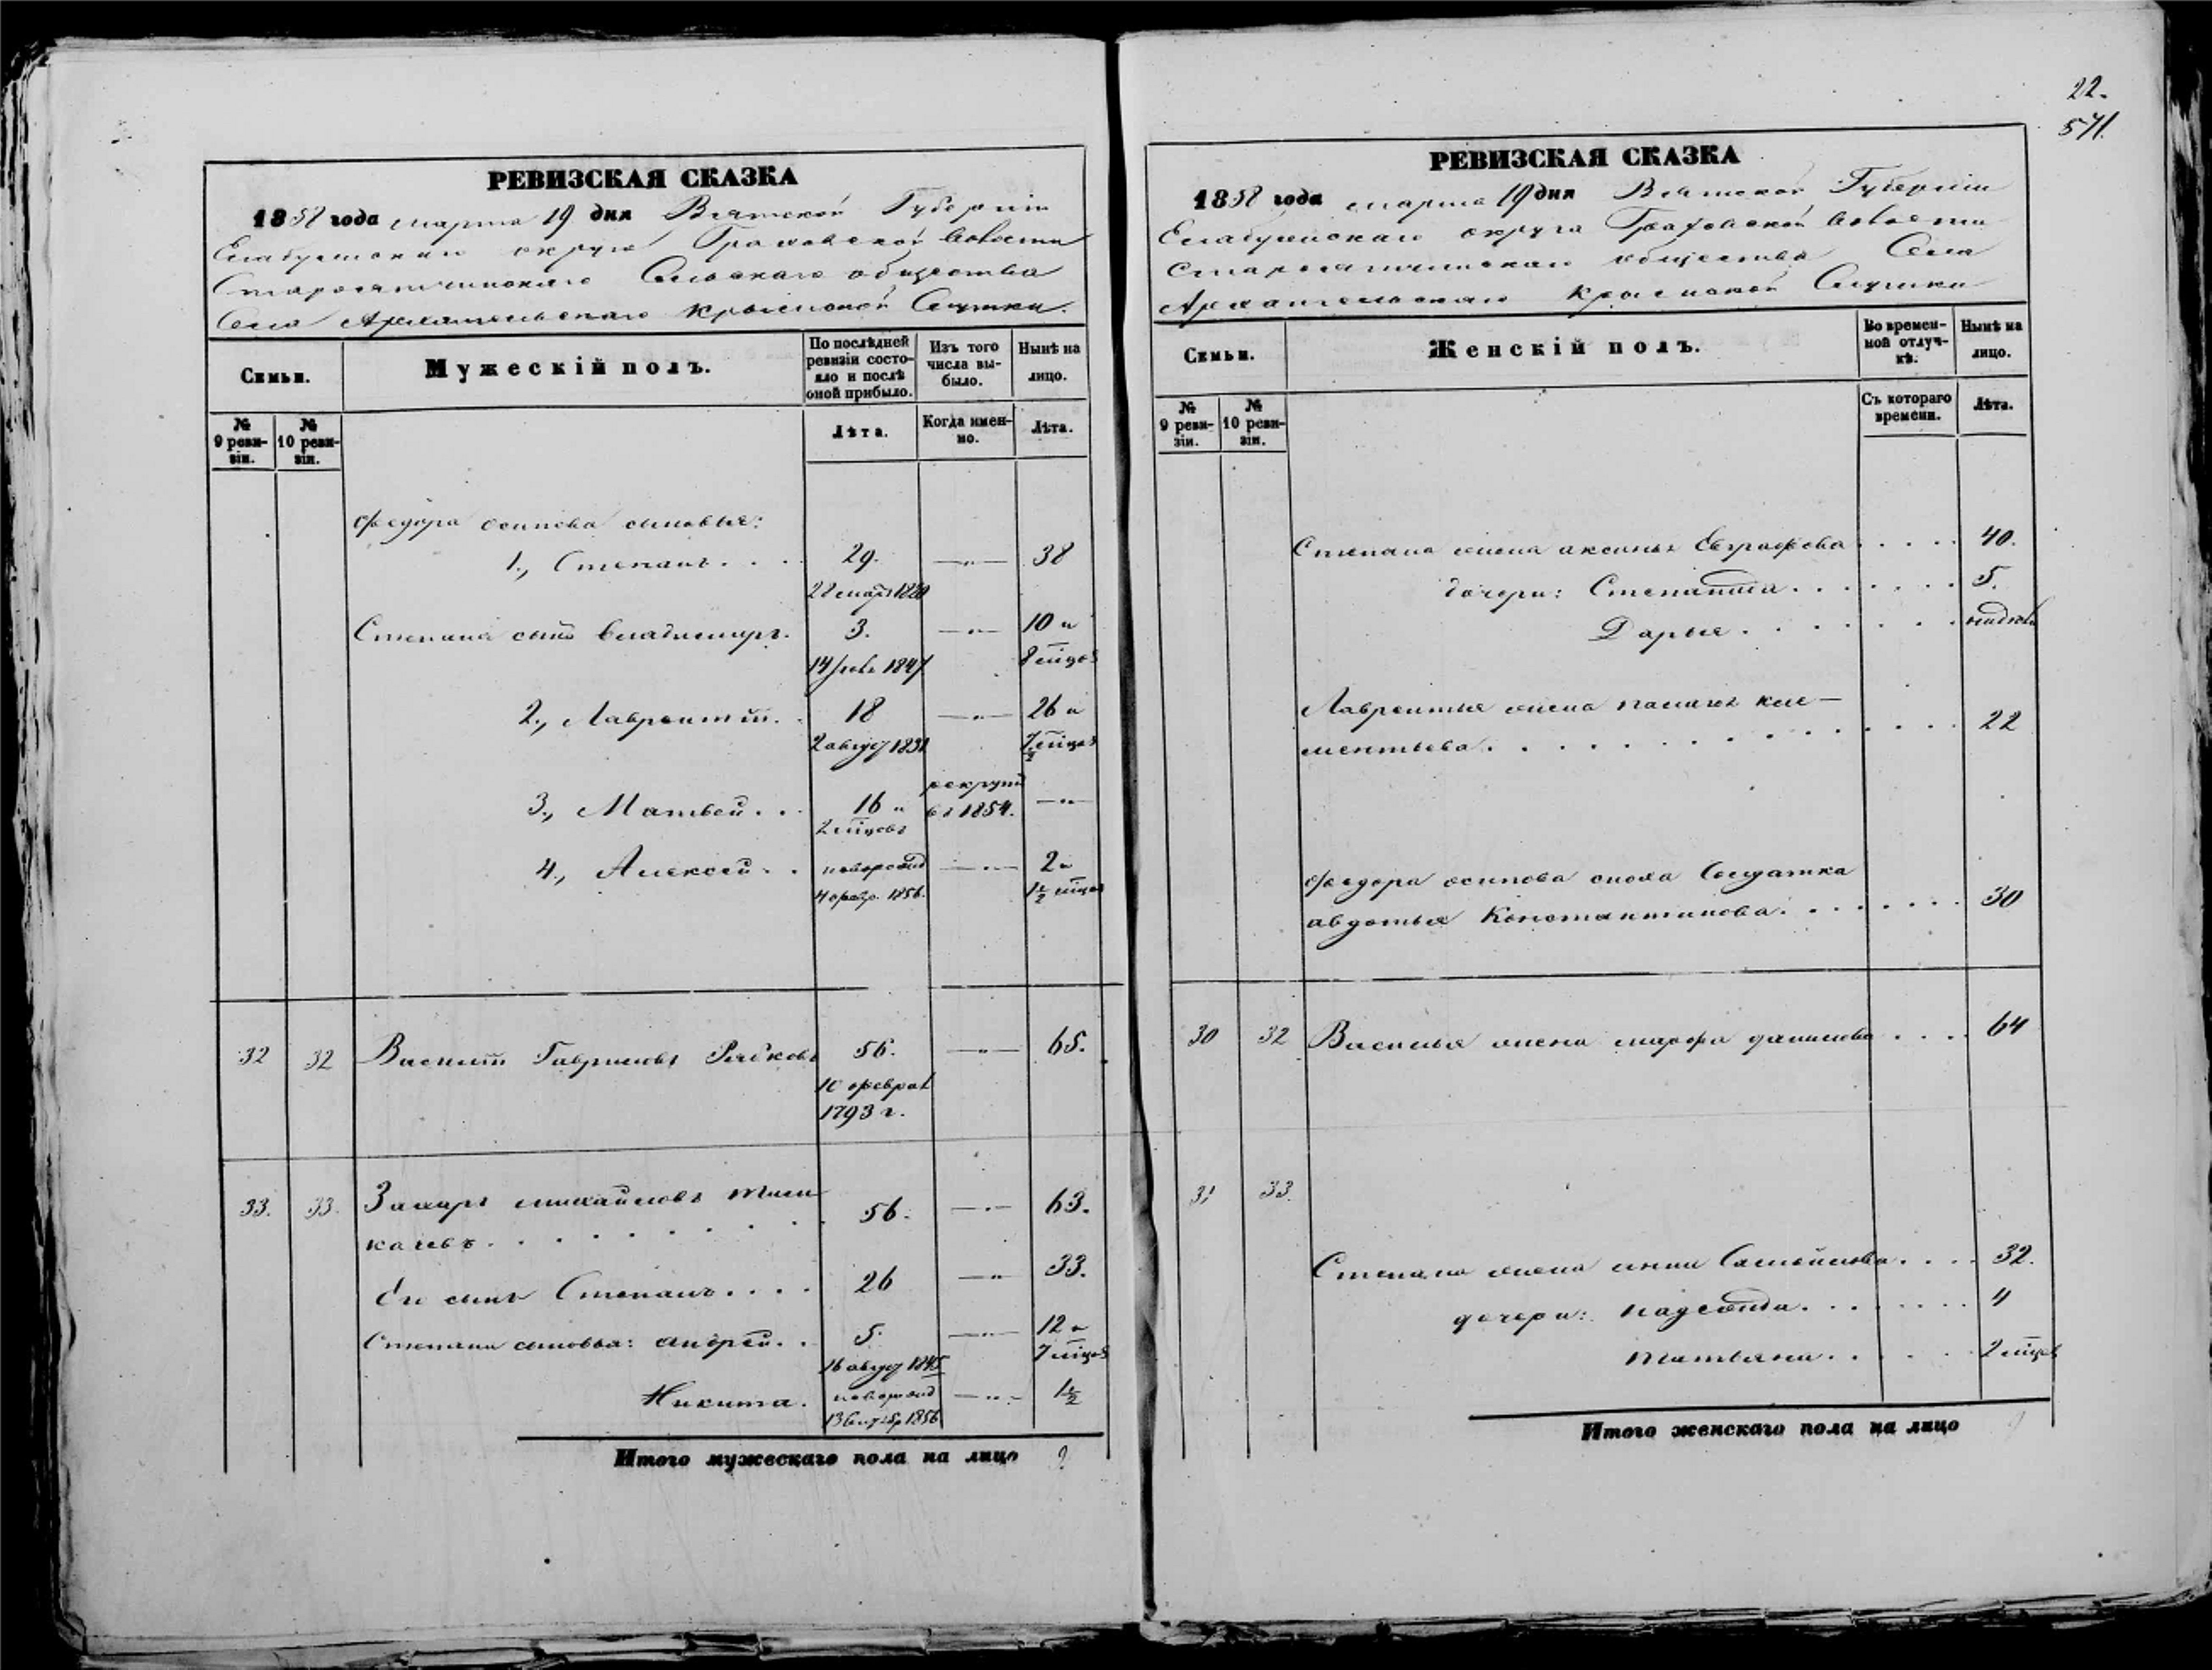 22.
571.
РЕВИЗСКАЯ СКАЗКА
1858 года марта 19 дня Вятской Губерніи
Елабужскаго округа Граховской волости
Сельскаго общества
Села Архангельскаго Крымской Слудки.
Семьи.
Мужескій полъ.
По послѣдней ревизіи состояло и послѣ оной прибыло.
Изъ того числа выбыло.
Нынѣ на лицо.
№ 9 ревизіи.
№ 10 ревизіи.
Лѣта.
Когда именно.
Лѣта.
Федора Осипова сыновья:
1., Степанъ . . . . 29. —„— 38
Степана сынъ Владимиръ. 3. —„— 10 и
14 1847 8 мѣцов
2., Лаврентій . . 18 —„— 26 и
2 август 1831 7½ мѣцов
рекрут
3., Матвей . . . 16 и въ 1854. —„—
2 мѣцовъ
4., Алексей . . новорожд —„— 2 и
4 февр. 1856. 1½ мѣцов
32 32 Василій Гавриловъ Рябковъ 56. —„— 65.
10 феврал
1793 г.
33. 33. Захаръ Михайловъ
качевъ . . . . . . . . 56. —„— 63.
Ег сынъ Степанъ . . . . 26 —„— 33.
Степана сыновья: Андрей . . 5. —„— 12 и
16 август 1845 7 мѣцов
Никита . новорожд —„— 1½
13 1856
Итого мужескаго пола на лицо 9.
РЕВИЗСКАЯ СКАЗКА
1858 года марта 19 дня Вятской Губерніи
Елабужскаго округа Граховской волости
общества Села
Архангельскаго Крымской Слудки
Семьи.
Женскій полъ.
Во временной отлучкѣ.
Нынѣ на лицо.
№ 9 ревизіи.
№ 10 ревизіи.
Съ котораго времени.
Лѣта.
Степана жена Аксинья Евграфова . . . . 40.
дочери: Степанида . . . . . . . 5.
Дарья . . . . . . . недель
Лаврентья жена Палагея Кле-
ментьева . . . . . . . . . . . . 22
Федора Осипова сноха Солдатка
Авдотья Константинова . . . . . . . 30
30 32 Василья жена Марфа Данилова . . . . 64
31 33.
Степана жена Анна Самойлова . . . . 32.
дочери: Надежда . . . . . . . 4
Татьяна . . . . . . 2 мѣцов
Итого женскаго пола на лицо 9